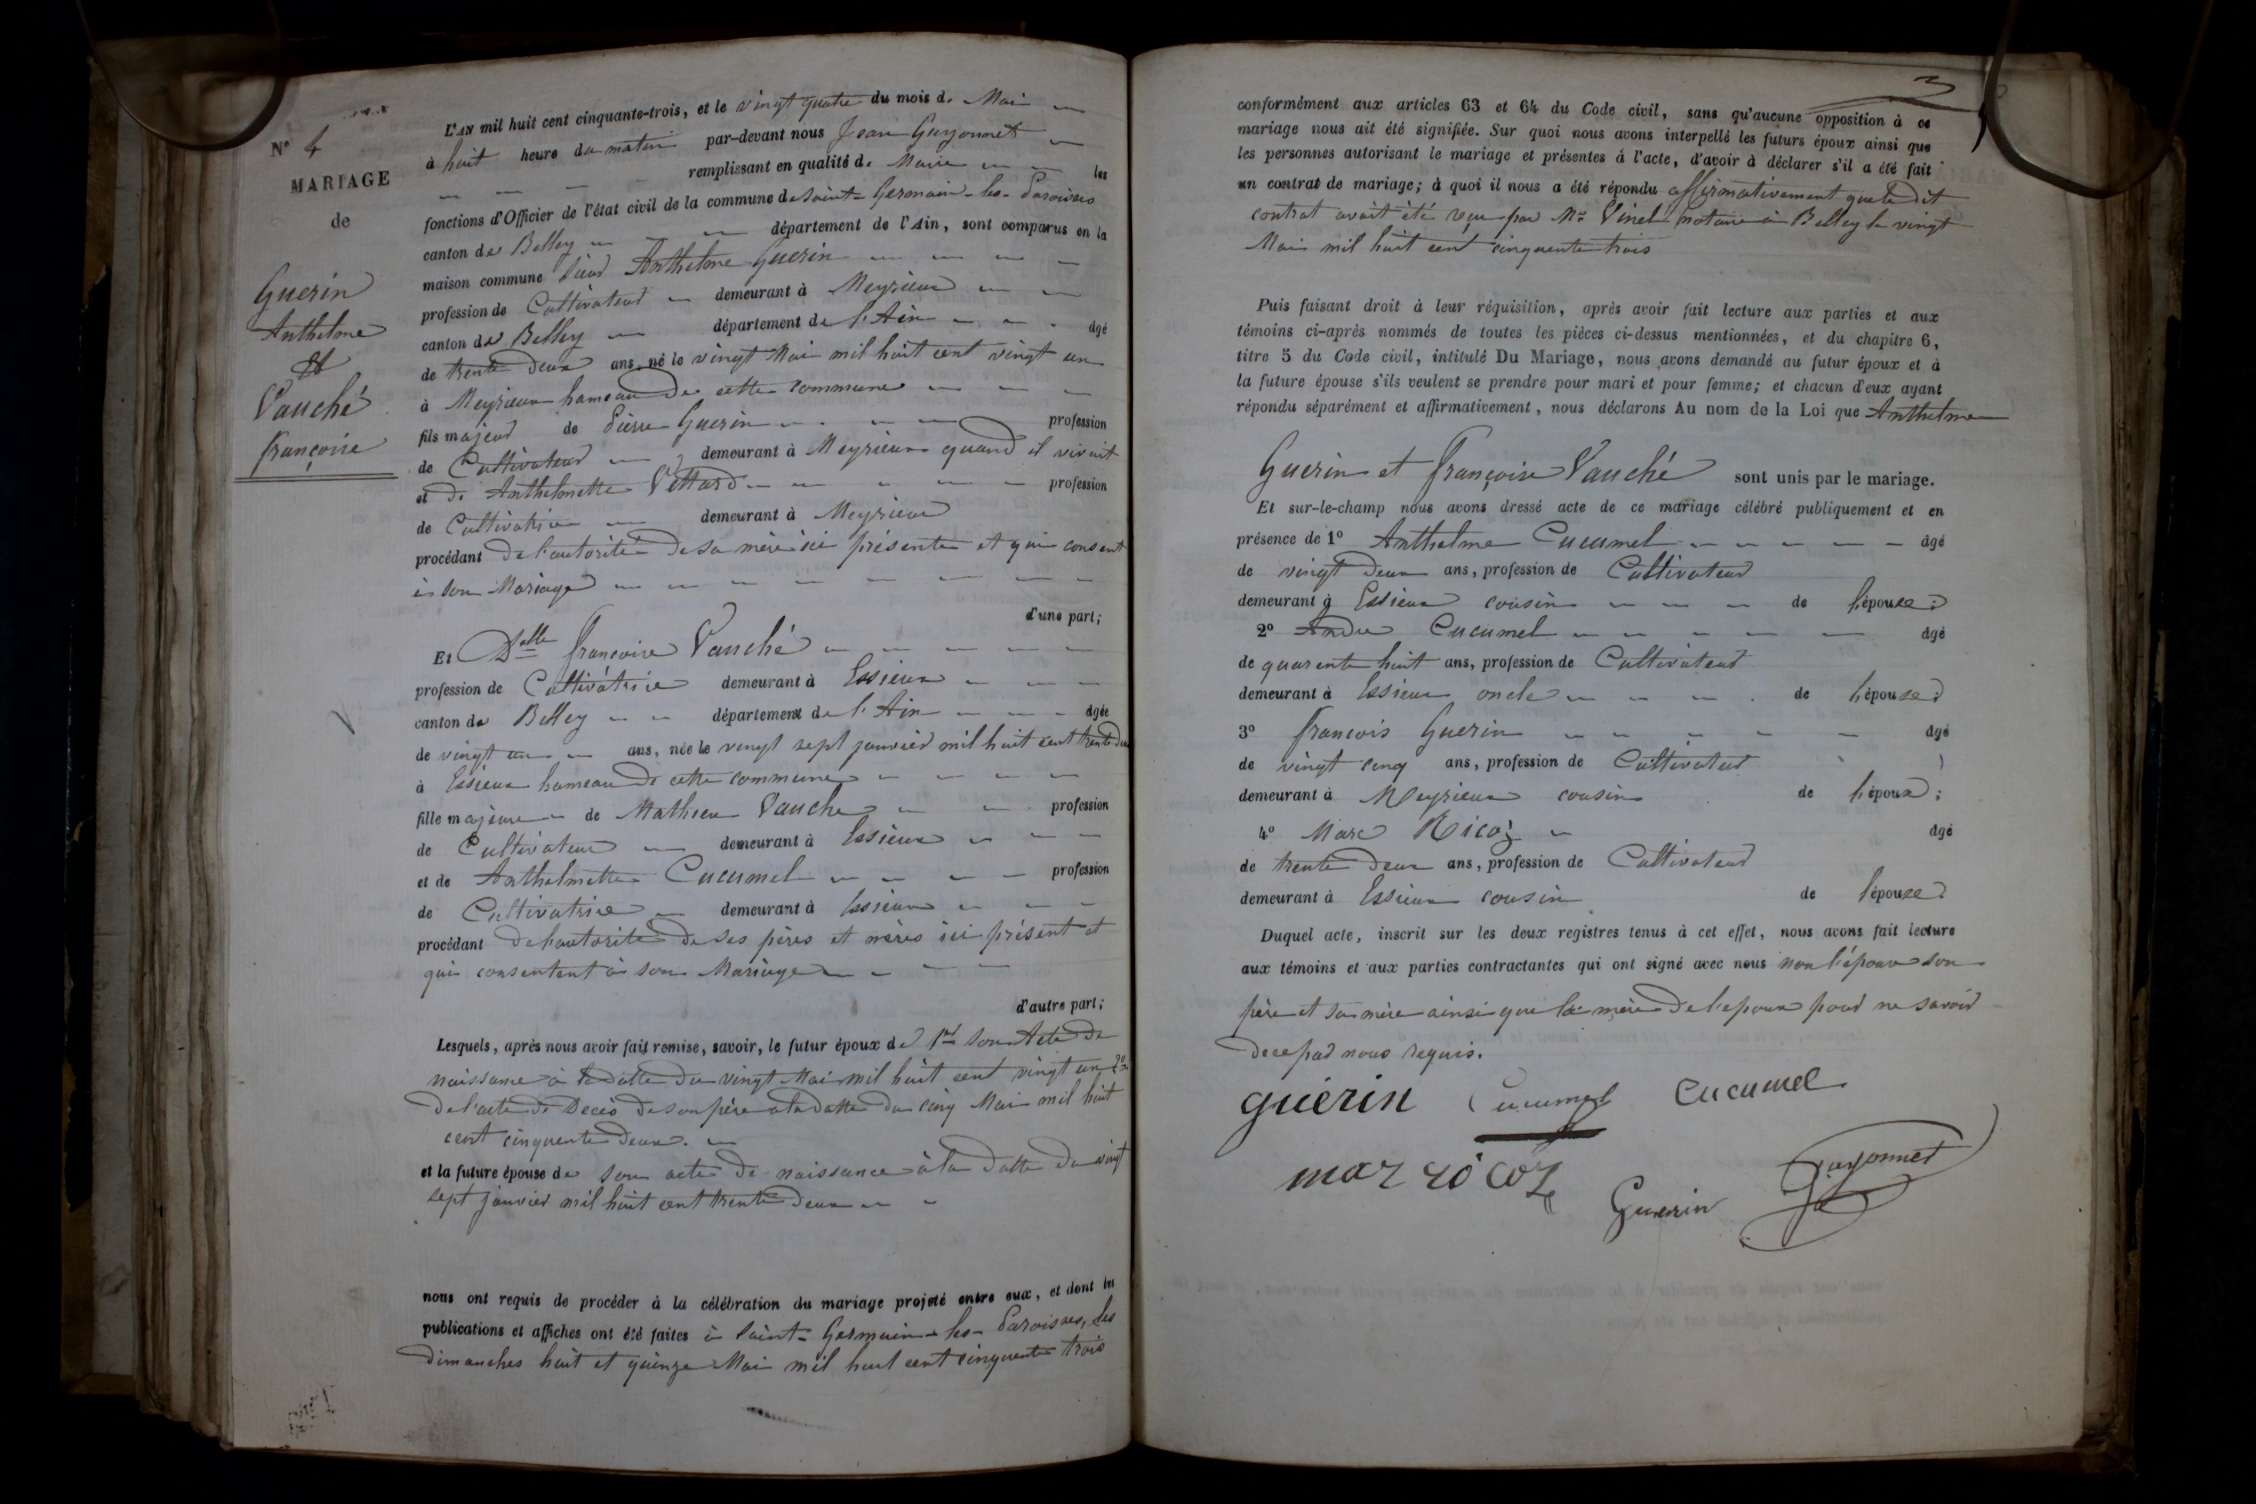 N° 4
MARIAGE
de
Guerin
Anthelme
et
Vauché
françoise
L'AN mil huit cent cinquante-trois, et le vingt quatre du mois de Mai
à huit heure du matin par-devant nous Jean Guyonnet
remplissant en qualité de Maire les
fonctions d'Officier de l'état civil de la commune de Saint-Germain-les-Paroisses
canton de Belley département de l'Ain, sont comparus en la
maison commune Sieur Anthelme Guerin
profession de Cultivateur demeurant à Meyrieux
canton de Belley département de l'Ain âgé
de trente deux ans né le vingt Mai mil huit cent vingt un
à Meyrieux hameau de cette commune
fils majeur de Pierre Guerin profession
de Cultivateur demeurant à Meyrieux quand il vivait
et de Anthelmette Vettard profession
de Cultivatrice demeurant à Meyrieux
procédant de l'autorité de sa mère ici présente et qui consent
à son Mariage
d'une part;
Et Dlle françoise Vauché
profession de Cultivatrice demeurant à Essieux
canton de Belley département de l'Ain âgée
de vingt un ans, née le vingt sept janvier mil huit cent trente deux
à Essieux hameau de cette commune
fille majeure de Mathieu Vauche profession
de Cultivateur demeurant à Essieux
et de Anthelmette Cucumel profession
de Cultivatrice demeurant à Essieux
procédant de l'autorité de ses pères et mères ici présent et
qui consentent à son Mariage
d'autre part;
Lesquels, après nous avoir fait remise, savoir, le futur époux de 1nt son Acte de
naissance à la datte du vingt Mai mil huit cent vingt un 2nt
de l'acte de Décès de son père a la datte du cinq Mai mil huit
cent cinquente deux.
et la future épouse de son acte de naissance à la datte du vingt
sept janvier mil huit cent trente deux
nous ont requis de procéder à la célébration du mariage projeté entre eux, et dont les
publications et affiches ont été faites à Saint-Germain-les-Paroisses, les
dimanches huit et quinze Mai mil huit cent cinquente trois
3
conformément aux articles 63 et 64 du Code civil, sans qu'aucune opposition à ce
mariage nous ait été signifiée. Sur quoi nous avons interpellé les futurs époux ainsi que
les personnes autorisant le mariage et présentes à l'acte, d'avoir à déclarer s'il a été fait
un contrat de mariage; à quoi il nous a été répondu affirmativement que le dit
contrat avait été reçu par Me Vinel notaire à Belley le vingt
Mai mil huit cent cinquente trois
Puis faisant droit à leur réquisition, après avoir fait lecture aux parties et aux
témoins ci-après nommés de toutes les pièces ci-dessus mentionnées, et du chapitre 6,
titre 5 du Code civil, intitulé Du Mariage, nous avons demandé au futur époux et à
la future épouse s'ils veulent se prendre pour mari et pour femme; et chacun d'eux ayant
répondu séparément et affirmativement, nous déclarons Au nom de la Loi que Anthelme
Guerin et françoise Vauché sont unis par le mariage.
Et sur-le-champ nous avons dressé acte de ce mariage célébré publiquement et en
présence de 1° Anthelme Cucumel âgé
de vingt deux ans, profession de Cultivateur
demeurant à Essieux cousin de l'épouse;
2° Andre Cucumel âgé
de quarente huit ans, profession de Cultivateur
demeurant à Essieux oncle de l'épouse;
3° francois Guerin âgé
de vingt cinq ans, profession de Cultivateur
demeurant à Meyrieux cousin de l'époux;
4° Marc Ricoz âgé
de trente deux ans, profession de Cultivateur
demeurant à Essieux cousin de l'épouse
Duquel acte, inscrit sur les deux registres tenus à cet effet, nous avons fait lecture
aux témoins et aux parties contractantes qui ont signé avec nous non l'épouse son
père et sa mère ainsi que la mère de l'epoux pour ne savoir
de ce par nous requis.
guérin Cucumel Cucumel
marc ricoz Guerin Guyonnet